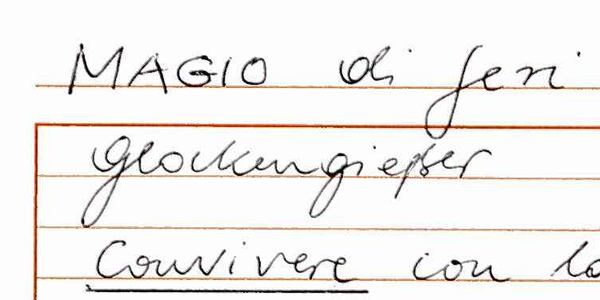 MAGIO di feri
Glockengießer
Convivere con la